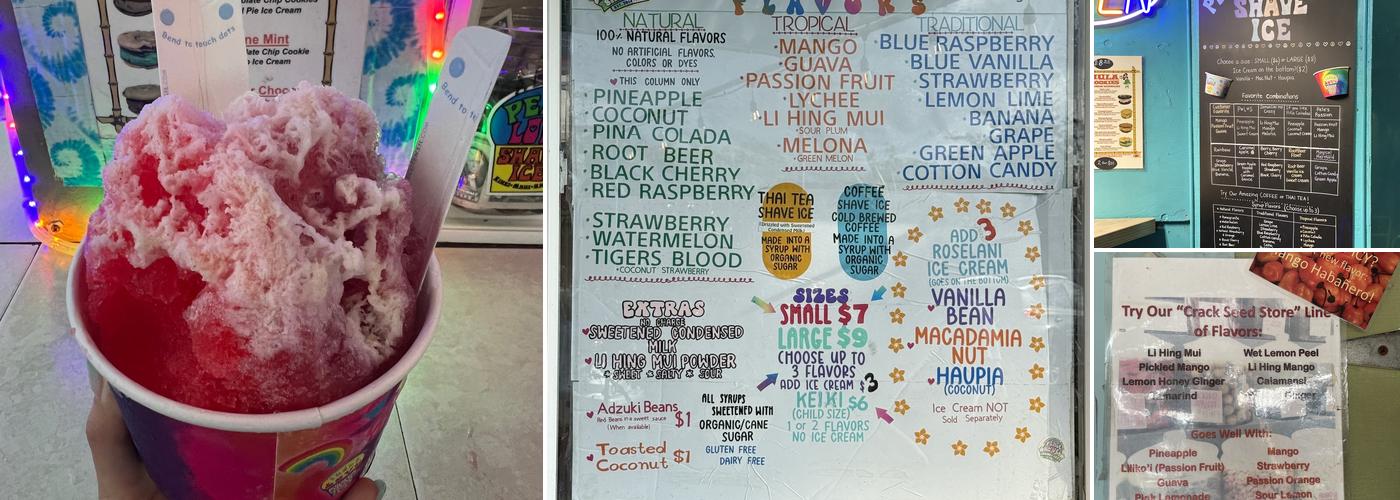 late Chip Cookies
d Pie Ice Cream
ne Mint
late Chip Cookie
p Ice Cream
Choc
Bend to touch dots
Bend to t
SHA
ICE
FLAVORS
NATURAL
100% NATURAL FLAVORS
NO ARTIFICIAL FLAVORS,
COLORS OR DYES
THIS COLUMN ONLY
PINEAPPLE
COCONUT
PINA COLADA
ROOT BEER
BLACK CHERRY
RED RASPBERRY
STRAWBERRY
WATERMELON
TIGERS BLOOD
COCONUT STRAWBERRY
EXTRAS
NO CHARGE
SWEETENED CONDENSED
MILK
LI HING MUI POWDER
SWEET * SALTY * SOUR
Adzuki Beans $1
Red Beans in a sweet sauce
(When available)
Toasted
Coconut $1
TROPICAL
MANGO
GUAVA
PASSION FRUIT
LYCHEE
LI HING MUI
SOUR PLUM
MELONA
GREEN MELON
THAI TEA
SHAVE ICE
Drizzled with Sweetened
Condensed Milk
MADE INTO A
SYRUP WITH
ORGANIC
SUGAR
COFFEE
SHAVE ICE
COLD BREWED
COFFEE
MADE INTO A
SYRUP WITH
ORGANIC
SUGAR
SIZES
SMALL $7
LARGE $9
CHOOSE UP TO
3 FLAVORS
ADD ICE CREAM $3
KEIKI $6
(CHILD SIZE)
1 or 2 FLAVORS
NO ICE CREAM
ALL SYRUPS
SWEETENED WITH
ORGANIC/CANE
SUGAR
GLUTEN FREE
DAIRY FREE
TRADITIONAL
BLUE RASPBERRY
BLUE VANILLA
STRAWBERRY
LEMON LIME
BANANA
GRAPE
GREEN APPLE
COTTON CANDY
ADD 3
ROSELANI
ICE CREAM
(GOES ON THE BOTTOM)
VANILLA
BEAN
MACADAMIA
NUT
HAUPIA
(COCONUT)
Ice Cream NOT
Sold Separately
SHAVE
ICE
Choose a size: SMALL ($6) or LARGE ($8)
Ice Cream on the bottom? ($2)
Vanilla - Mac Nut - Haupia
Favorite Combinations
Try Our Amazing COFFEE or THAI TEA!
Syrup Flavors (Choose up to 3)
new flavor
Mango Habañero!
Try Our "Crack Seed Store" Line
of Flavors:
Li Hing Mui
Pickled Mango
Lemon Honey Ginger
Tamarind
Wet Lemon Peel
Li Hing Mango
Calamansi
Ginger
Goes Well With:
Pineapple
Liliko'i (Passion Fruit)
Guava
Pink Lemonade
Mango
Strawberry
Passion Orange
Sour Lemon